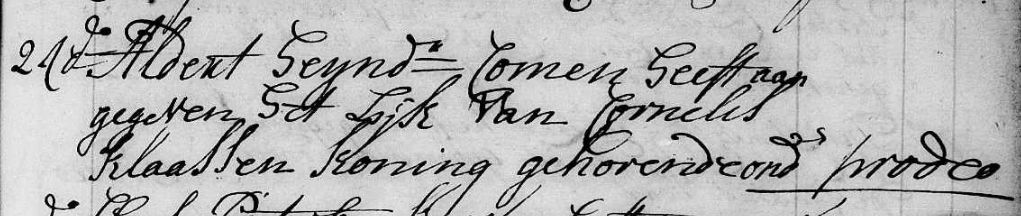 24 do Aldert Heynds Comen Heeft aan
gegeven Het Lijk Van Cornelis
Klaassen Koning gehorende onds prodeo